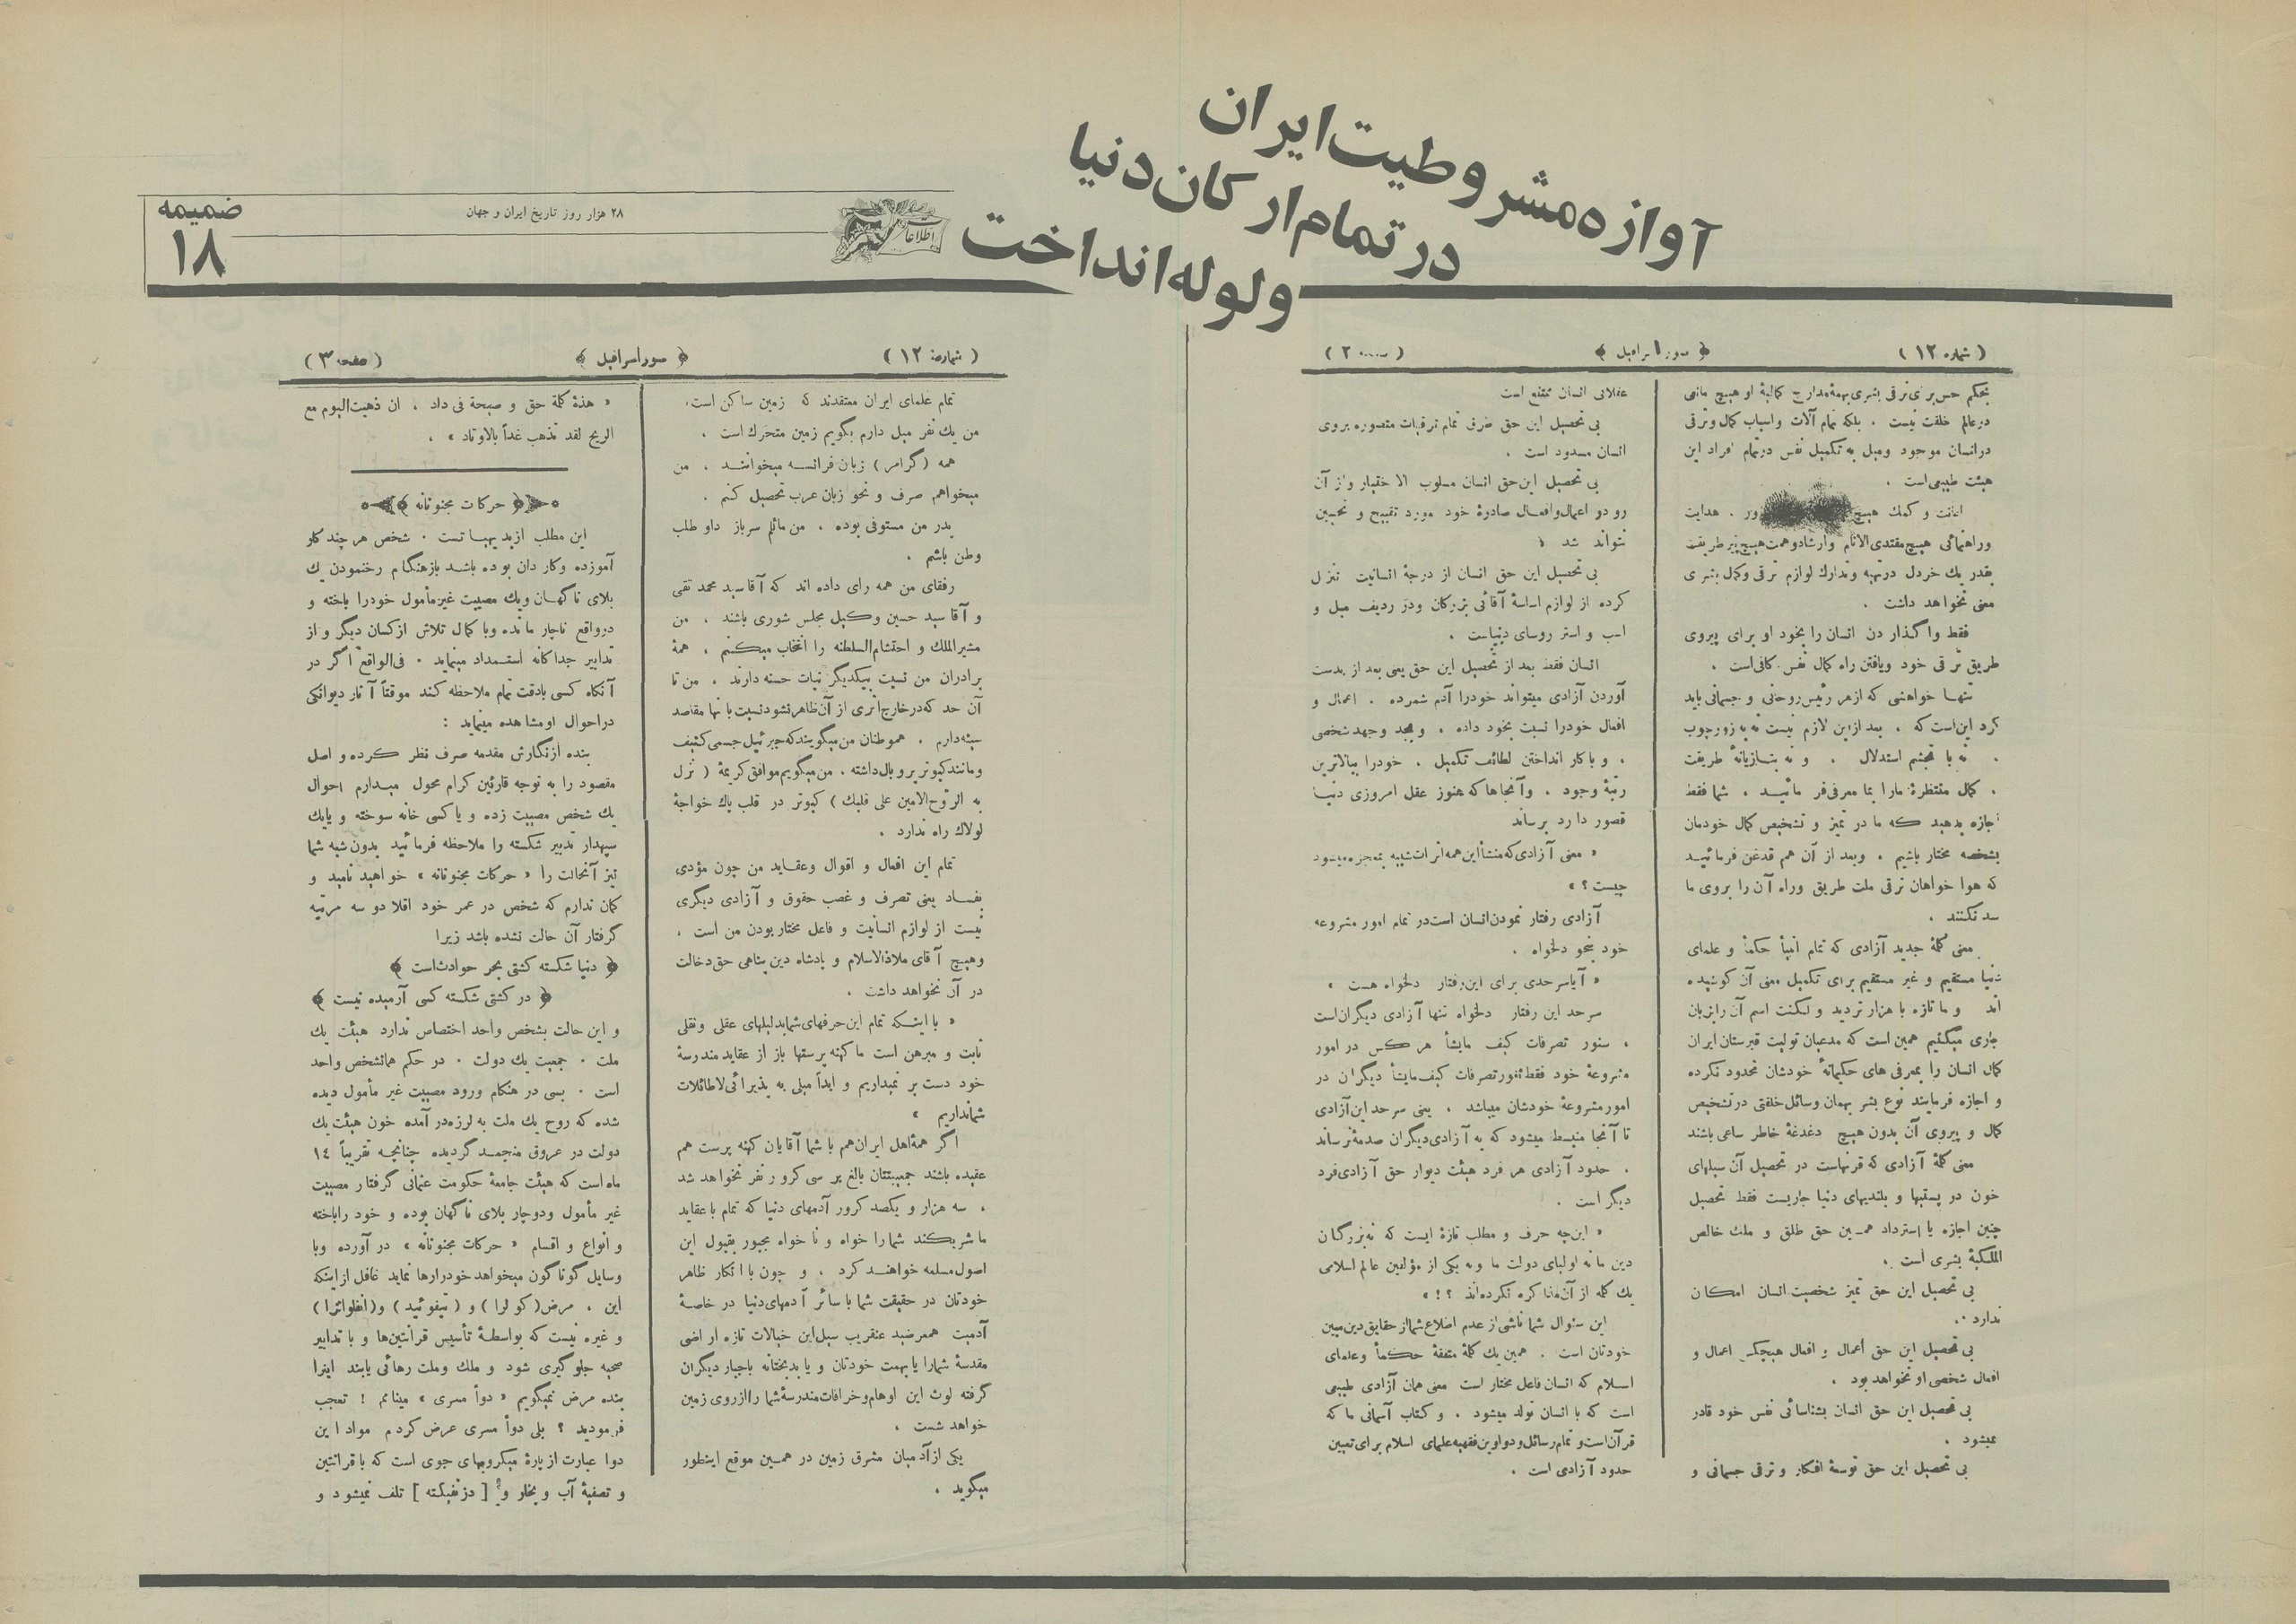 آوازه مشروطیت ایران
در تمام ارکان دنیا
ولوله انداخت
ضمیمه
۱۸
۲۸ هزار روز تاریخ ایران و جهان
اطلاعات
( شماره ۱۲ )
( ۲ )
بحکم حس برای ترقی بشری بهمهٔ مدارج کمالیهٔ او هیچ مانعی
در عالم خلقت نیست . بلکه تمام آلات و اسباب کمال و ترقی
در انسان موجود و میل به تکمیل نفس در تمام افراد این
هیئت طبیعی است .
اعانت و کمک هیچ . هدایت
وراهنمائی هیچ مقتدی الانام وارشاد و همت هیچ پیر طریقت
بقدر یك خردل در تهیه و تدارك لوازم ترقی و کمل بشری
معنی نخواهد داشت .
فقط واگذاردن انسان را بخود او برای پیروی
طریق ترقی خود و یافتن راه کمال نفس کافی است .
تنهـا خواهشی که از هر رئیس روحانی و جسمانی باید
کرد این است که . بعد از این لازم نیست نه به زور چوب
. نه با تجشم استدلال . و نه بتـازیانهٔ طریقت
. کمال منتظرهٔ مارا بما معرفی فرمائیـد . شما فقط
اجازه بدهید که ما در تمیز و تشخیص کمال خودمان
بشخصه مختار باشیم . وبعد از آن هم قدغن فرمائیـد
که هوا خواهان ترقی ملت طریق وراه آن را بروی ما
سد نکنند .
معنی کلمهٔ جدید آزادی که تمام انبیأ حکمأ و علمای
دنیا مستقیم و غیر مستقیم برای تکمیل معنی آن کوشیده
اند و ما تازه با هزار تردید و لکنت اسم آن را بزبان
جاری میکنیم همین است که مدعیان تولیت قبرستان ایران
کمال انسان را بمعرفی های حکیمانهٔ خودشان محدود نکرده
و اجازه فرمایند نوع بشر بهمان وسائل خلقتی در تشخیص
کمال و پیروی آن بدون هیـچ دغدغهٔ خاطر ساعی باشند
معنی کلمهٔ آزادی که قرنهاست در تحصیل آن سیلهای
خون در پستیها و بلندیهای دنیا جاریست فقط تحصیل
چنین اجازه یا استرداد همـین حق طلق و ملك خالص
الملکیهٔ بشری است .
بی تحصیل این حق تمیز شخصیت انسان امکان
ندارد .
بی تحصیل این حق اعمال و افعال هیچکس اعمال و
افعال شخصی او نخواهد بود .
بی تحصیل این حق انسان بشناسائی نفس خود قادر
نمیشود .
بی تحصیل این حق توسعهٔ افکار و ترقی جسمانی و
عقلانی انسان ممتنع است
بی تحصیل این حق طرق تمام ترقیات متصوره بروی
انسان مسدود است .
بی تحصیل این حق انسان مسلوب الاختیار و از آن
رو در اعمال و افعـال صادرهٔ خود مورد تقبیح و تحسین
نتواند شد .
بی تحصیل این حق انسان از درجهٔ انسانیت تنزل
کرده از لوازم اساسهٔ آقائی بزرگان ودر ردیف مبل و
اسب و استر روسای دنیاست .
انسان فقط بعد از تحصیل این حق یعنی بعد از بدست
آوردن آزادی میتواند خودرا آدم شمرده . اعمال و
افعال خودرا نسبت بخود داده . و بجد و جهد شخصی
. و باکار انداختن لطائف تکمیل . خودرا ببالاترین
رتبهٔ وجود . و آنجاها که هنوز عقل امروزی دنیـا
قصور دارد برساند
« معنی آزادی که منشأ این همه اثرات شبیه بمعجزه میشود
چیست ؟ »
آزادی رفتار نمودن انسان است در تمام امور مشروعه
خود بنحو دلخواه .
« آیا سرحدی برای این رفتار دلخواه هست »
سرحد این رفتار دلخواه تنها آزادی دیگران است
. سنور تصرفات کیف مایشأ هر کس در امور
مشروعهٔ خود فقط سنور تصرفات کیف مایشأ دیگران در
امور مشروعهٔ خودشان میباشد . یعنی سرحد این آزادی
تا آنجا منبسط میشود که به آزادی دیگران صدمه نرساند
. حدود آزادی هر فرد هیئت دیوار حق آزادی فرد
دیگر است .
« این چه حرف و مطلب تازهٔ ایست که نه بزرگان
دین ما نه اولیای دولت ما و نه یکی از مؤلفین عالم اسلامی
یك کلمه از آن مذاکره نکرده اند ؟! »
این سئوال شما ناشی از عدم اطلاع شما از حقایق دین مبین
خودتان است . همین یك کلمهٔ متفقهٔ حکمأ و علمای
اسـلام که انسان فاعل مختار است معنی همان آزادی طبیعی
است که با انسان تولد میشود . و کتاب آسمانی ما که
قرآن است و تمام رسائل و دواوین فقهیه علمای اسلام برای تعیین
حدود آزادی است .
( شمارهٔ ۱۲ )
﴿ صور اسرافیل ﴾
( صفحه ۳ )
تمام علمای ایران معتقدند که زمین ساکن است .
من یك نفر میل دارم بگویم زمین متحرك است .
همه (گرامر) زبان فرانسـه میخواننـد . من
میخواهم صرف و نحو زبان عرب تحصیل کنم .
پدر من مستوفی بوده . من مائلم سرباز داو طلب
وطن باشم .
رفقای من همه رای داده اند که آقا سید محمد تقی
و آقا سید حسین وکیل مجلس شوری باشند . من
مشیرالملك و احتشام السلطنه را انتخاب میکنم . همهٔ
برادران من نسبت بیکدیگر نیات حسنه دارند . من تا
آن حد که در خارج اثری از آن ظاهر نشود نسبت بانها مقاصد
سیئه دارم . هموطنان من میگویند که جبرئیل جسمی کثیف
و مانند کبوتر پر و بال داشته . من میگویم موافق کریمهٔ ( نزل
به الروح الامین علی قلبك ) کبوتر در قلب پاك خواجهٔ
لولاك راه ندارد .
تمام این افعال و اقوال وعقـاید من چون مؤدی
بفسـاد یعنی تصرف و غصب حقوق و آزادی دیگری
نیست از لوازم انسانیت و فاعل مختار بودن من است .
وهیـچ آقای ملاذالاسلام و پادشاه دین پناهی حق دخالت
در آن نخواهد داشت .
« با اینـکه تمام این حرفهای شما بدلیلهای عقلی و نقلی
ثابت و مبرهن است ما کهنه پرستها باز از عقاید مندرسهٔ
خود دست بر نمیداریم و ابداً میلی به پذیرائی لاطائلات
شما نداریم »
اگر همهٔ اهل ایران هم با شما آقایان کهنه پرست هم
عقیده باشند جمعیتتان بالغ بر سی کرور نفر نخواهد شد
. سه هزار و یکصد کرور آدمهای دنیا که تمام با عقاید
ما شریکند شما را خواه و نا خواه مجبور بقبول این
اصول مسلمه خواهنـد کرد . و چون با انکار ظاهر
خودتان در حقیقت شما با سائر آدمهای دنیا در خاصهٔ
آدمیت همعرضید عنقریب سیل این خیالات تازه اراضی
مقدسهٔ شمارا یا بهمت خودتان و یا بدبختانه باجبار دیگران
گرفته لوث این اوهام و خرافات مندرسهٔ شما را از روی زمین
خواهد شست .
یکی از آدمیان مشرق زمین در همـین موقع اینطور
میگوید .
« هذهٔ کلمة حق و صیحة فی داد . ان ذهبت الیوم مع
الریح لقد تذهب غداً بالاوتاد » .
﴿ حرکات مجنونانه ﴾
این مطلب از بدیهیـا تست . شخص هر چند کار
آموزده و کار دان بوده باشـد باز هنگام رخنمودن یك
بلای ناگهـان ویك مصیبت غیر مأمول خودرا باخته و
در واقع ناچار مانده وبا کمال تلاش از کسان دیگر و از
تدابیر جداگانه استـمداد مینماید . فی الواقع اگر در
آنگاه کسی بادقت تمام ملاحظه کند موقتاً آثار دیوانگی
در احوال او مشاهده مینماید :
بنده از نگارش مقدمه صرف نظر کرده و اصل
مقصود را به توجه قارئین کرام محول میـدارم احوال
یك شخص مصیبت زده و یا کسی خانه سوخته و یا یك
سپهدار تدبیر شکسته را ملاحظه فرمائید بدون شبه شما
نیز آنحالت را « حرکات مجنونانه » خواهید نامید و
گمان ندارم که شخص در عمر خود اقلا دو سه مرتبه
گرفتار آن حالت نشده باشد زیرا
﴿ دنیا شکسته کشتی بحر حوادث است ﴾
﴿ در کشتی شکسته کسی آرمیده نیست ﴾
و این حالت بشخص واحد اختصاص ندارد هیئت یك
ملت . جمعیت یك دولت . در حکم همانشخص واحد
است . بسی در هنگام ورود مصیبت غیر مأمول دیده
شده که روح یك ملت به لرزه در آمده خون هیئت یك
دولت در عروق منجمـد گردیده چنانچـه تقریباً ۱۴
ماه است که هیئت جامعهٔ حکومت عثمانی گرفتار مصیبت
غیر مأمول ودوچار بلای ناگهان بوده و خود را باخته
و انواع و اقسام « حرکات مجنونانه » در آورده وبا
وسایل گوناگون میخواهد خود را رها نماید غافل از اینکه
این . مرض (کولرا) و ( تیفوئید ) و (انفلوانزا)
و غیره نیست که بواسطـهٔ تأسیس قرانتین‌ها و با تدابیر
صحیه جلوگیری شود و ملك وملت رهائی یابند اینرا
بنده مرض نمیگویم « دوأ مسری » مینامم ! تعجب
فرمودید ؟ بلی دوأ مسری عرض کردم مواد این
دوا عبارت از پارهٔ میکروبهای جوی است که با قرانتین
و تصفیهٔ آب و بخار و [ دزنفیکته ] تلف نمیشود و